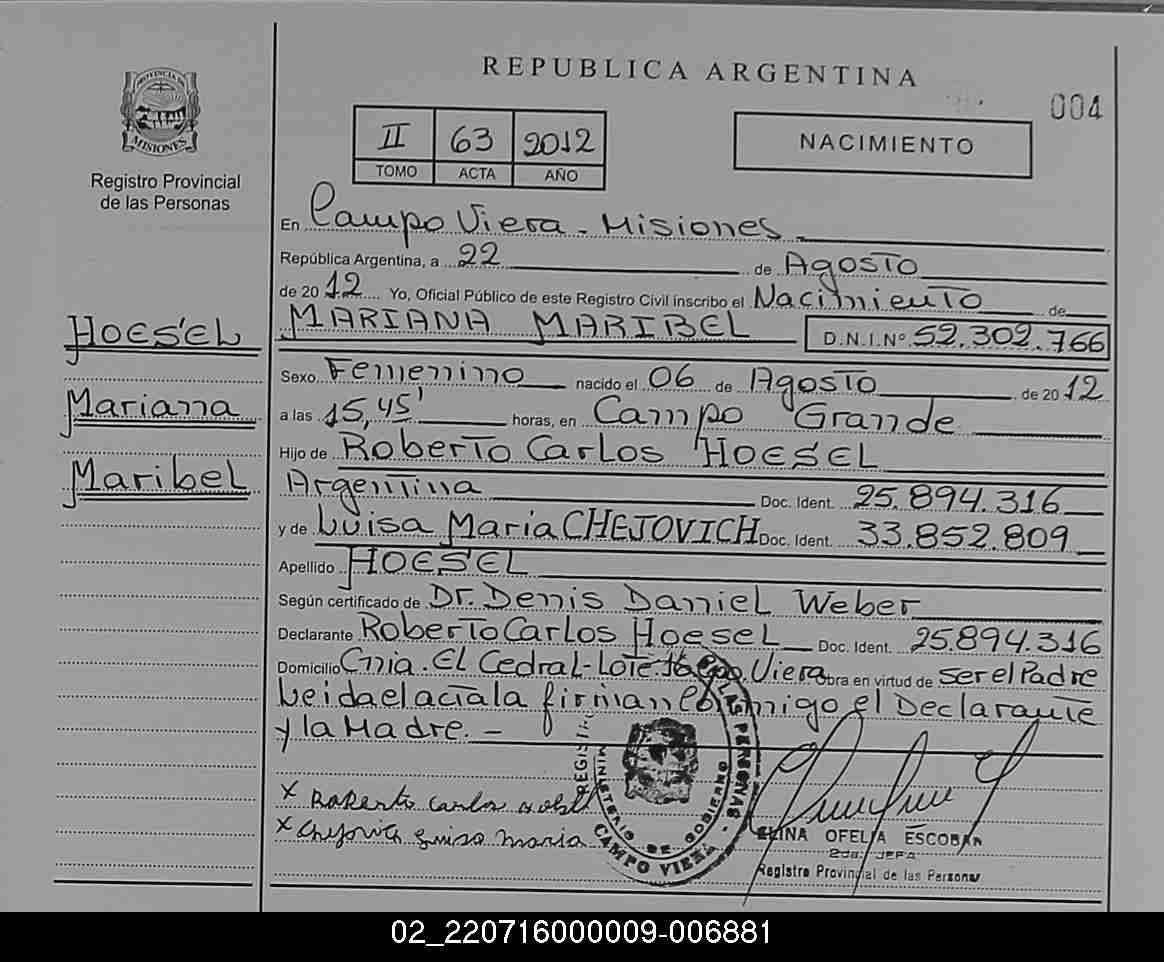 REPUBLICA ARGENTINA
004
PROVINCIA DE
MISIONES
Registro Provincial
de las Personas
II 63 2012
TOMO ACTA AÑO
NACIMIENTO
En Campo Viera - Misiones
República Argentina, a 22 de Agosto
de 2012 Yo, Oficial Público de este Registro Civil inscribo el Nacimiento de
MARIANA MARIBEL D.N.I.Nº 52.302.766
HOESEL
Mariana
Maribel
Sexo Femenino nacido el 06 de Agosto de 2012
a las 15,45' horas, en Campo Grande
Hijo de Roberto Carlos HOESEL
Argentina Doc. Ident. 25.894.316
y de Luisa Maria CHEJOVICH Doc. Ident. 33.852.809
Apellido HOESEL
Según certificado de Dr. Denis Daniel Weber
Declarante Roberto Carlos Hoesel Doc. Ident. 25.894.316
Domicilio Cnia. El Cedral - Lote 16 Cpo. Viera Obra en virtud de ser el Padre
Leida el acta la firman conmigo el Declarante
y la Madre. -
x Roberto Carlos
x Chejovich Luisa Maria
LAS PERSONAS
MINISTERIO DE GOBIERNO
CAMPO VIERA
ELINA OFELIA ESCOBAR
2da. JEFA
Registro Provincial de las Personas
02_220716000009-006881